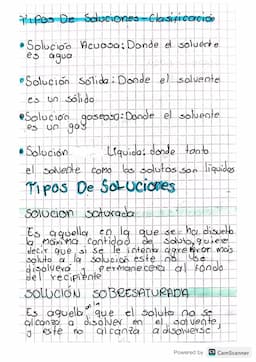 Tipos De Soluciones-Clasificació
• Solución Acuosa: Donde el solvente
es agua
• Solución sólida: Donde el solvente
es un sólido
• Solución gaseosa: Donde el solvente
es un gas
• Solución Liquida: donde tanto
el solvente como los solutos son liquidos
Tipos De Soluciones
Solucion saturada
Es aquella en la que se ha disuelto
la maxima cantidad de soluto, quiere
decir que si se le intenta agregar mas
soluto a la solucion este no se
disolvera y permanecera al fondo
del recipiente
SOLUCIÓN SOBRESATURADA
Es aquella que el soluto no se
alcanza a disolver en el solvente,
y este no alcanza a disolverse
Powered by CamScanner